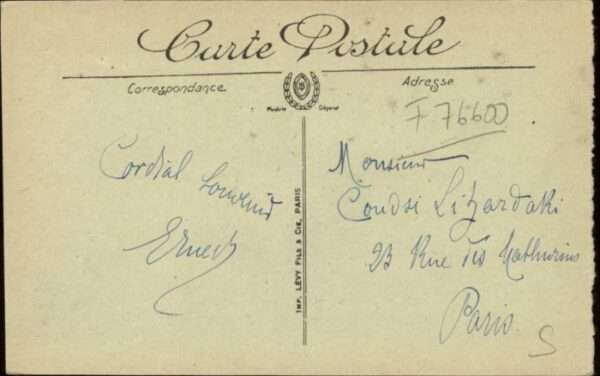 Carte Postale
Correspondance
Adresse
Modèle Déposé
F 76600
Cordial Souvenir
Ernest
IMP. LÉVY FILS & CIE, PARIS
Monsieur
Condsi Lizardaki
23 Rue des Mathurins
Paris